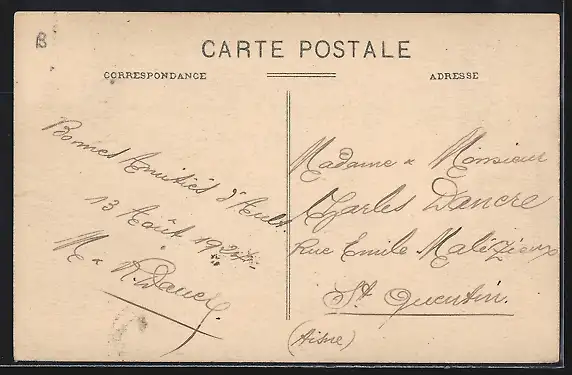 B
CARTE POSTALE
CORRESPONDANCE
ADRESSE
Bonnes Amitiés d'Ault
13 Août
M &
Madame & Monsieur
Charles Dancre
Rue Emile Malézieux
St Quentin.
(Aisne)